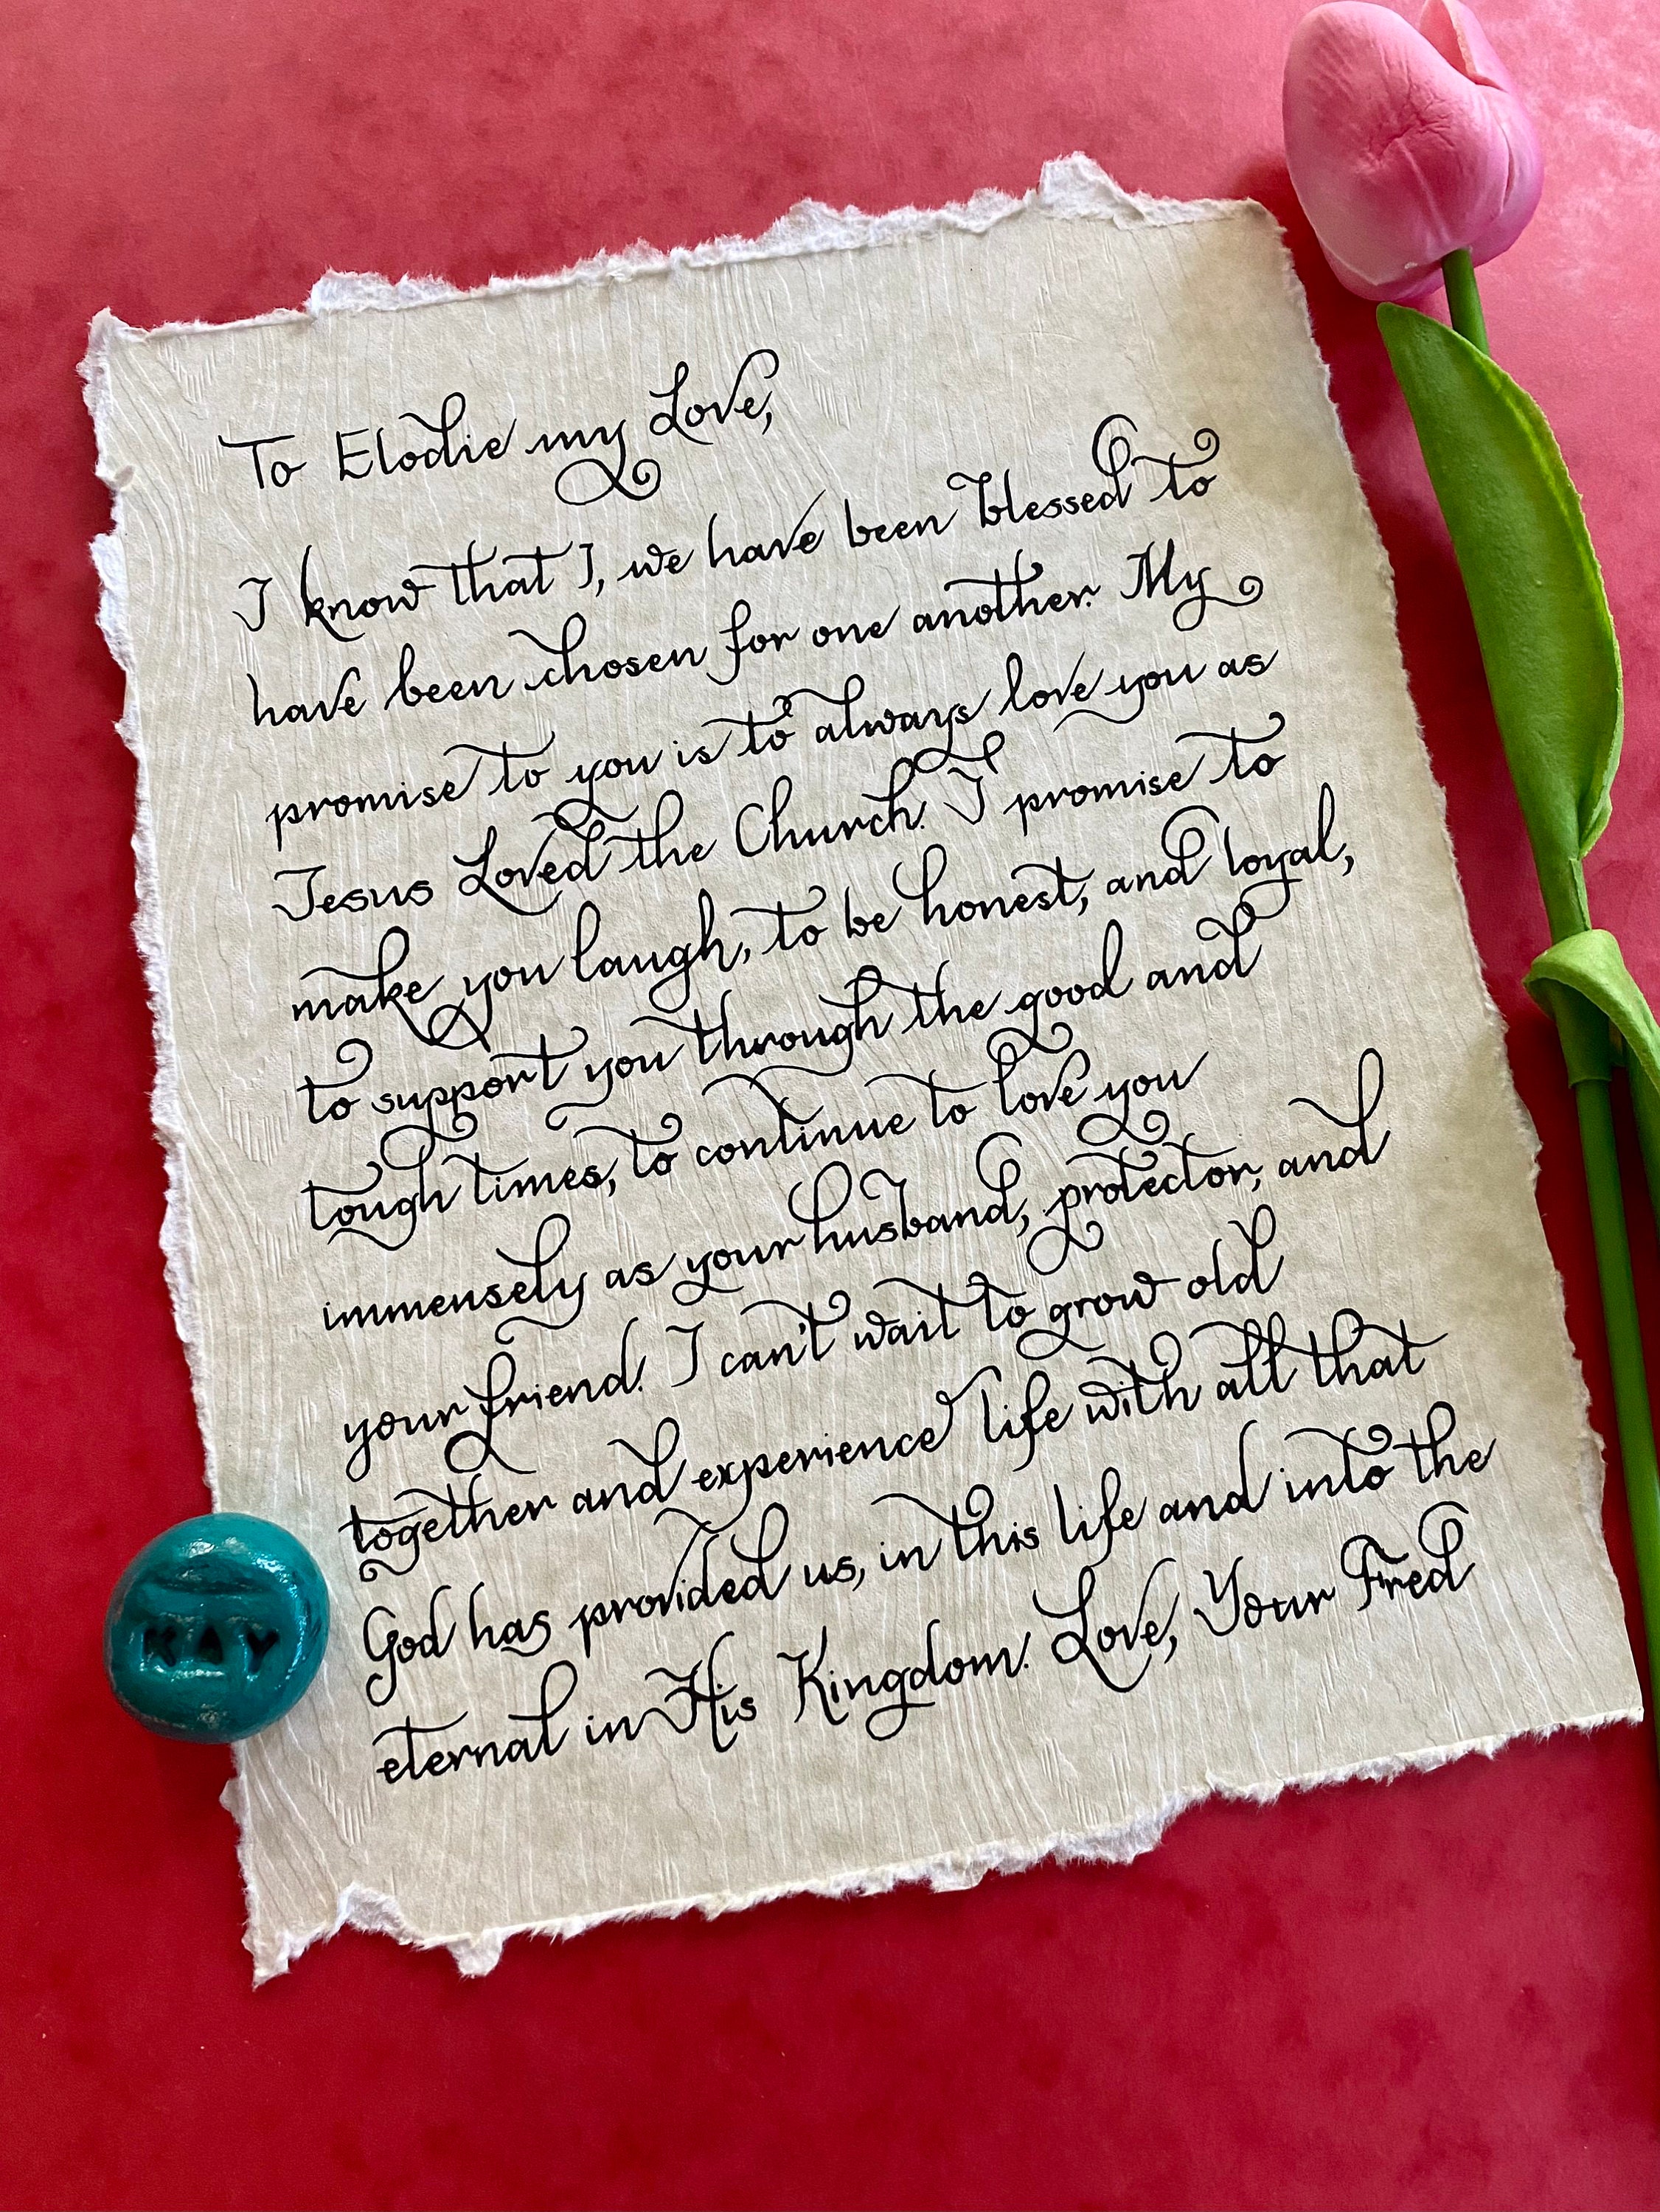 To Elodie my Love,
I know that I, we have been blessed to
have been chosen for one another. My
promise to you is to always love you as
Jesus Loved the Church. I promise to
make you laugh, to be honest, and loyal,
to support you through the good and
tough times, to continue to love you
immensely as your husband, protector, and
your friend. I can't wait to grow old
together and experience life with all that
God has provided us, in this life and into the
eternal in His Kingdom. Love, Your Fred
KAY